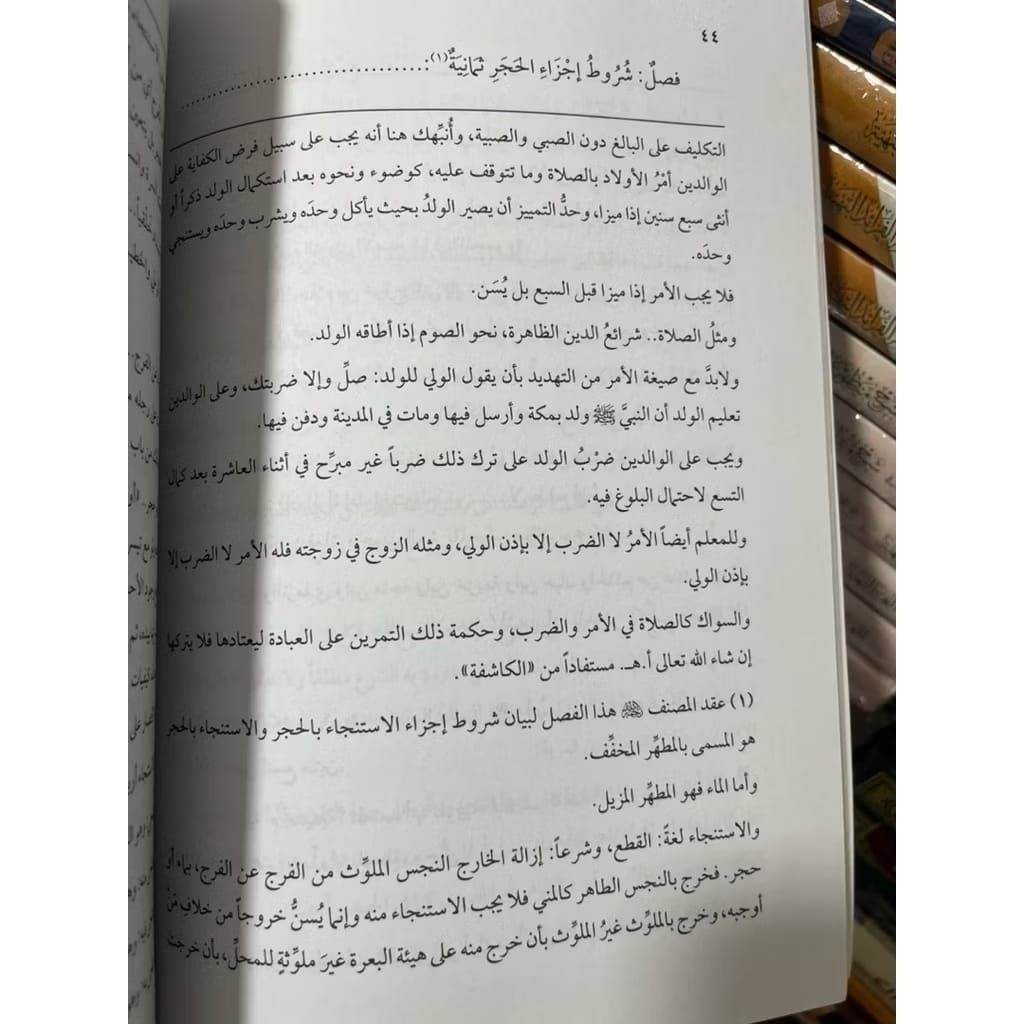 ٤٤
فصلٌ: شُرُوطُ إجْزَاءِ الحَجَرِ ثَمَانِيَةٌ(١):...............................
التكليف على البالغ دون الصبي والصبية، وأُنبِّهك هنا أنه يجب على سبيل فرض الكفاية على
الوالدين أمْرُ الأولاد بالصلاة وما تتوقف عليه، كوضوء ونحوه بعد استكمال الولد ذكراً أو
أنثى سبع سنين إذا ميزا، وحدُّ التمييز أن يصير الولدُ بحيث يأكل وحدَه ويشرب وحدَه ويستنجي
وحدَه.
فلا يجب الأمر إذا ميزا قبل السبع بل يُسَن.
ومثلُ الصلاة.. شرائعُ الدين الظاهرة، نحو الصوم إذا أطاقه الولد.
ولابدَّ مع صيغة الأمر من التهديد بأن يقول الولي للولد: صلِّ وإلا ضربتك، وعلى الوالدين
تعليم الولد أن النبيَّ ﷺ ولد بمكة وأرسل فيها ومات في المدينة ودفن فيها.
ويجب على الوالدين ضرْبُ الولد على ترك ذلك ضرباً غير مبرِّح في أثناء العاشرة بعد كمال
التسع لاحتمال البلوغ فيه.
وللمعلم أيضاً الأمرُ لا الضرب إلا بإذن الولي، ومثله الزوج في زوجته فله الأمر لا الضرب إلا
بإذن الولي.
والسواك كالصلاة في الأمر والضرب، وحكمة ذلك التمرين على العبادة ليعتادها فلا يتركها
إن شاء الله تعالى أ.هـ. مستفاداً من «الكاشفة».
(١) عقد المصنف هذا الفصل لبيان شروط إجزاء الاستنجاء بالحجر والاستنجاء بالحجر
هو المسمى بالمطهِّر المخفِّف.
وأما الماء فهو المطهِّر المزيل.
والاستنجاء لغةً: القطع، وشرعاً: إزالة الخارج النجس الملوِّث من الفرج عن الفرج، بماء أو
حجر. فخرج بالنجس الطاهر كالمني فلا يجب الاستنجاء منه وإنما يُسنُّ خروجاً من خلافِ مَنْ
أوجبه، وخرج بالملوِّث غيرُ الملوِّث بأن خرج منه على هيئة البعرة غيرَ ملوِّثةٍ للمحلِّ، بأن خرجت